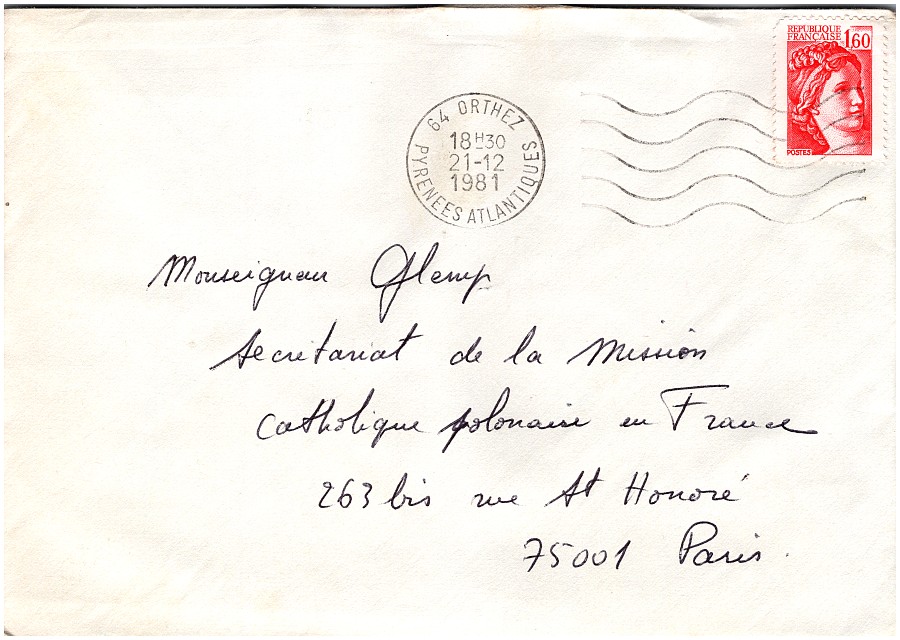 REPUBLIQUE
FRANÇAISE 1,60
POSTES
64 ORTHEZ
18H30
21-12
1981
PYRENEES ATLANTIQUES
Monseigneur Glemp
Secrétariat de la Mission
catholique polonaise en France
263 bis rue St Honoré
75001 Paris.